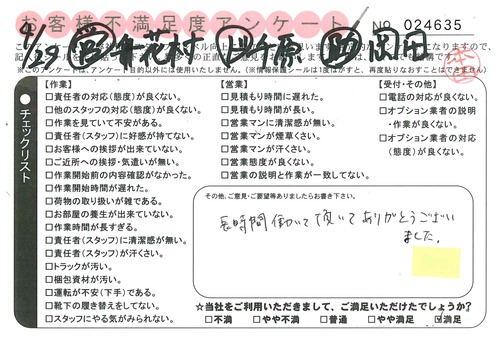 お客様不満足度アンケート
No 024635
9/29
花村
原
岡田
※このアンケートは、アンケート目的以外には使用いたしません。(情報保護シールは1度はがすと、再度貼りなおすことはできません)
チェックリスト
【作業】
□責任者の対応(態度)が良くない。
□他のスタッフの対応(態度)が良くない。
□作業を見ていて不安がある。
□責任者(スタッフ)に好感が持てない。
□お客様への挨拶が出来ていない。
□ご近所への挨拶・気遣いが無い。
□作業開始前の内容確認がなかった。
□作業開始時間が遅れた。
□荷物の取り扱いが雑である。
□お部屋の養生が出来ていない。
□作業時間が長すぎる。
□責任者(スタッフ)に清潔感が無い。
□責任者(スタッフ)が汗くさい。
□トラックが汚い。
□梱包資材が汚い。
□運転が不安(下手)である。
□靴下の履き替えをしてない。
□スタッフにやる気がみられない。
【営業】
□見積もり時間に遅れた。
□見積もり時間が長い。
□営業マンに清潔感が無い。
□営業マンが煙草くさい。
□営業マンが汗くさい。
□営業態度が良くない。
□営業の説明と作業が一致してない。
【受付・その他】
□電話の対応が良くない。
□オプション業者の説明
・作業が良くない。
□オプション業者の対応
(態度)が良くない。
その他、ご意見・ご要望等ありましたらお書き下さい。
長時間働いて頂いてありがとうござい
ました。
★当社をご利用いただきまして、ご満足いただけたでしょうか?
□不満 □やや不満 □普通 □やや満足 ☑満足